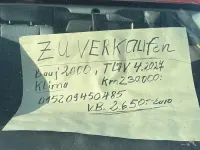 ZU VERKaufen
Bauj 2000., TÜV 4.2027
Klima Km 230000:
015209450485
V.B. 2.650.-